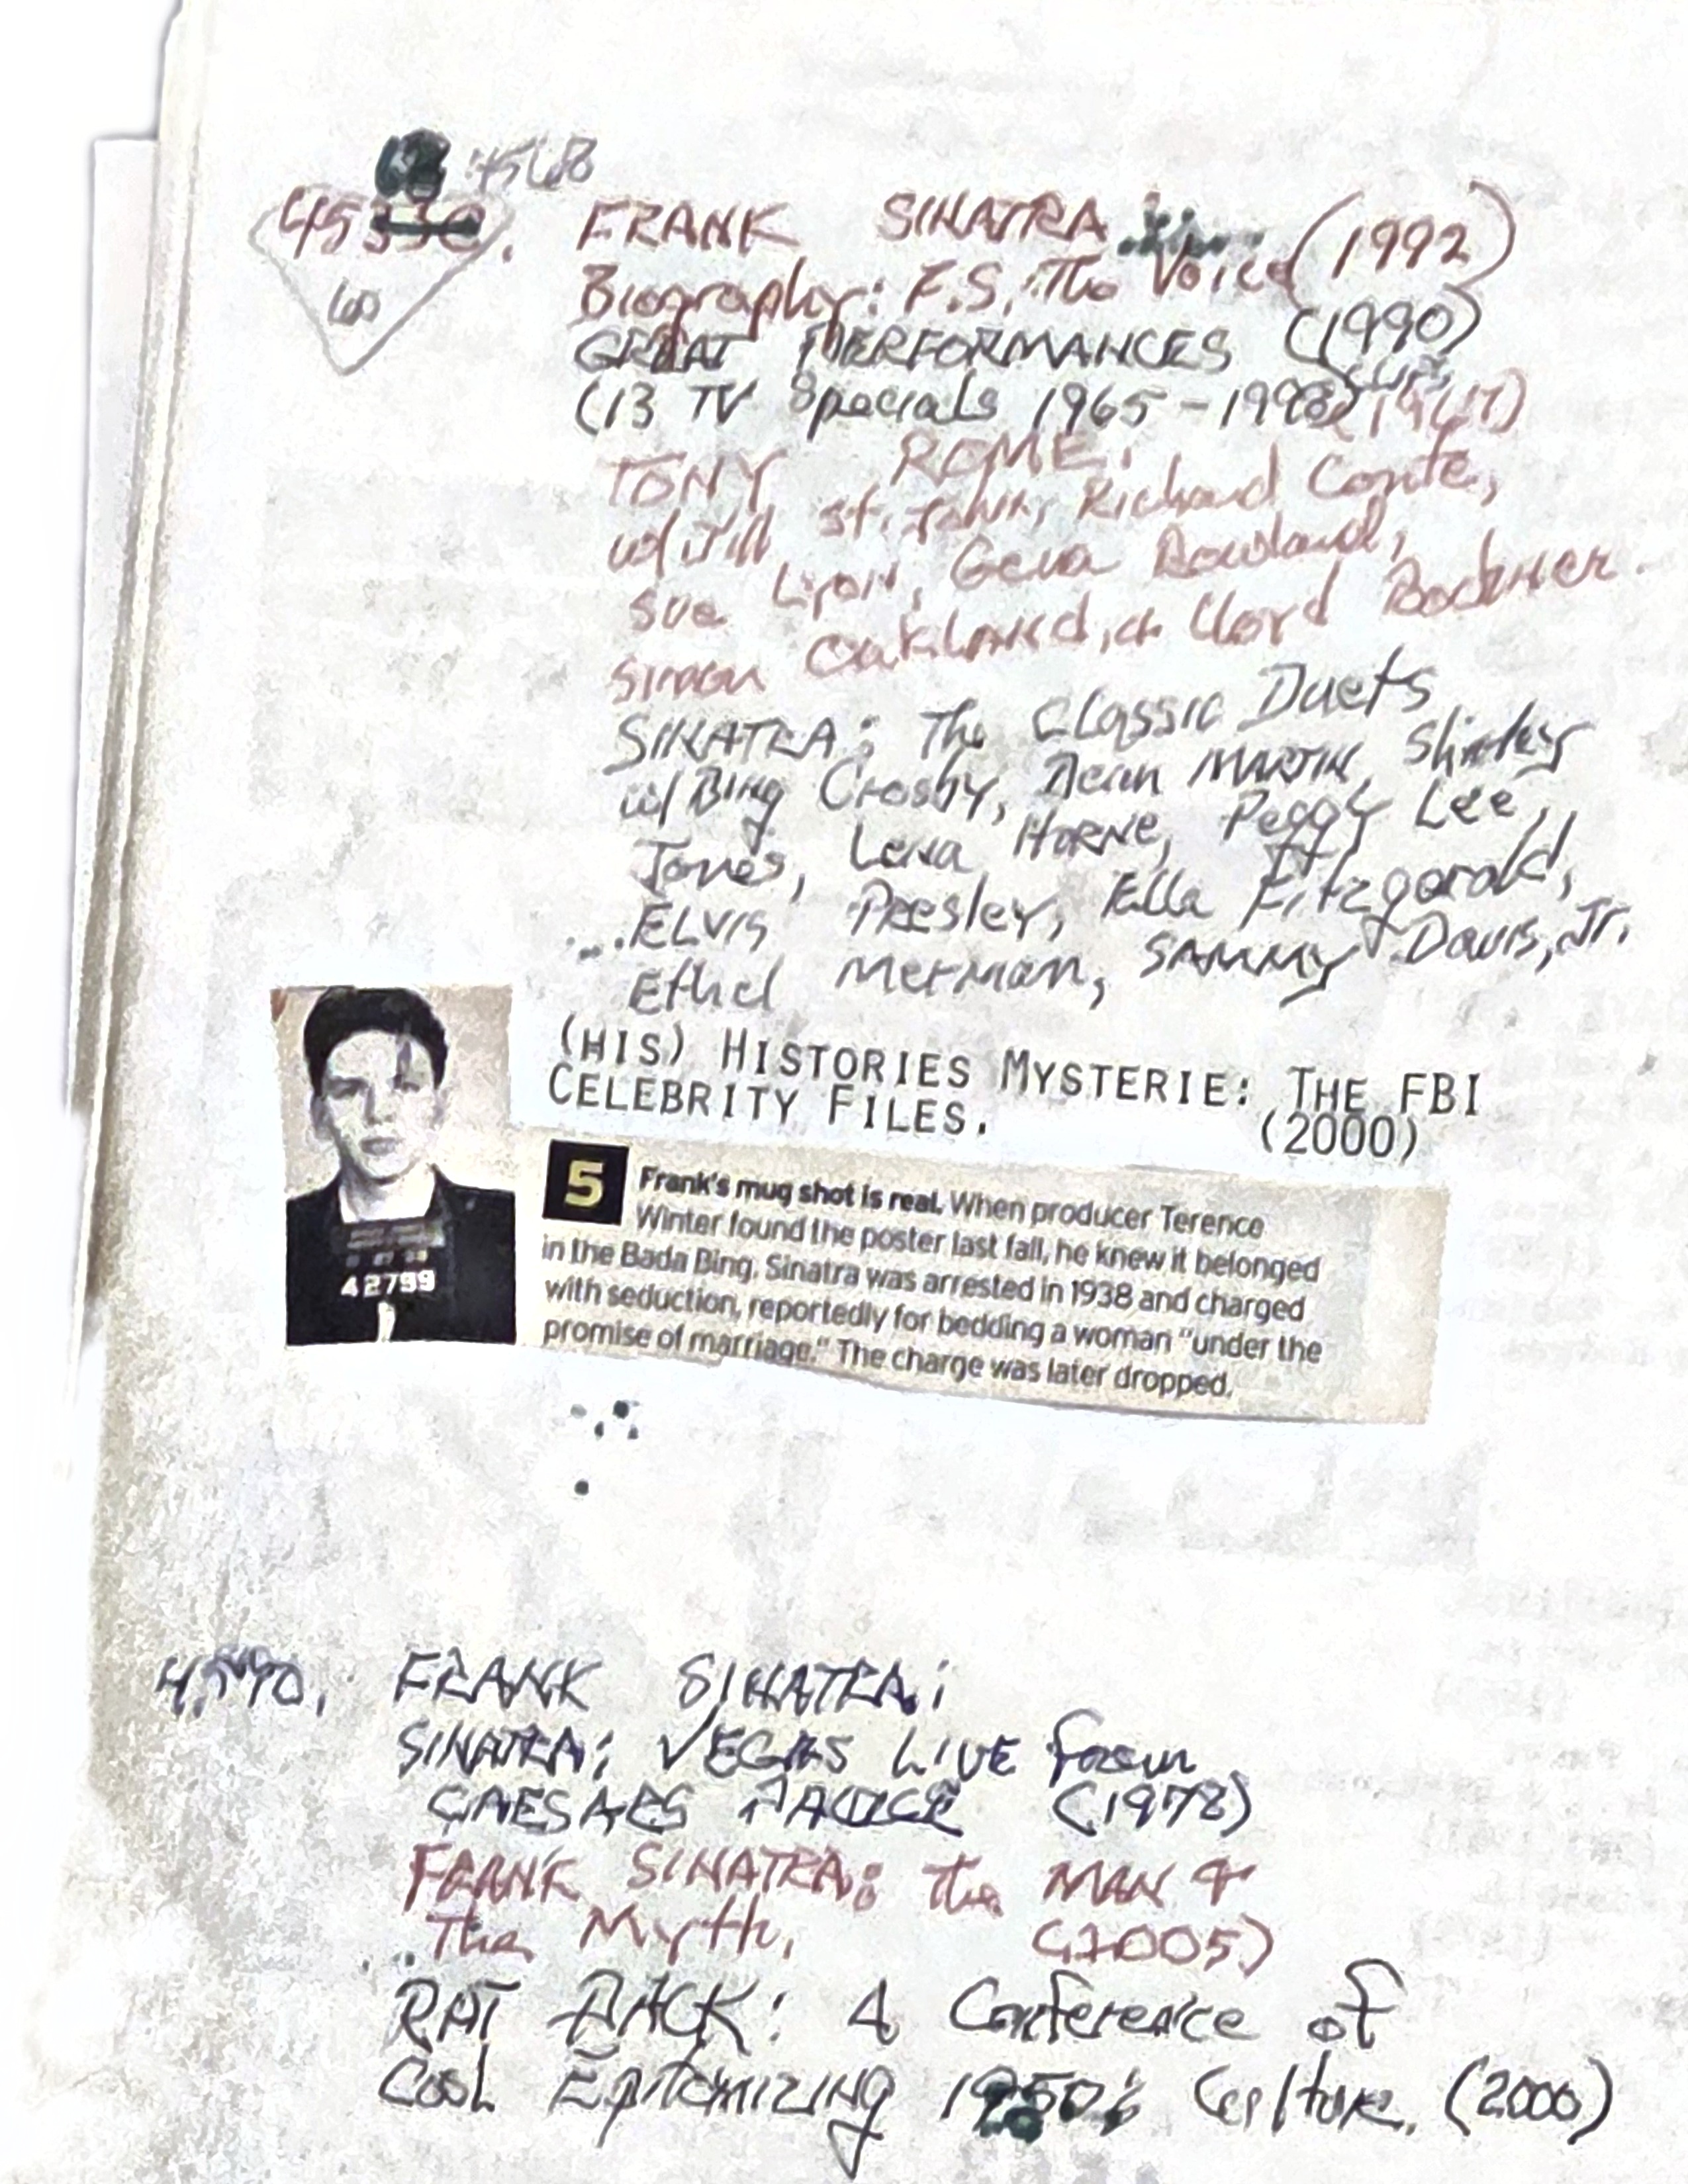 4568
45
60
FRANK SINATRA (1992)
Biography: F.S. The Voice
GREAT PERFORMANCES (1990)
(13 TV Specials 1965-1993) (1967)
TONY ROME,
w/Jill St. John, Richard Conte,
Sue Lyon, Gena Rowland,
Simon Oakland, & Lloyd Bochner.
SINATRA: The Classic Duets
w/Bing Crosby, Dean MARTIN, Shirley
Jones, Lena HORNE, Peggy Lee,
...ELVIS Presley, Ella Fitzgerald,
Ethel Merman, SAMMY Davis, Jr.
(HIS) HISTORIES MYSTERIE: THE FBI
CELEBRITY FILES. (2000)
42799
5 Frank's mug shot is real. When producer Terence
Winter found the poster last fall, he knew it belonged
in the Bada Bing. Sinatra was arrested in 1938 and charged
with seduction, reportedly for bedding a woman "under the
promise of marriage." The charge was later dropped.
FRANK SINATRA:
SINATRA: VEGAS LIVE from
CAESARS PALACE (1978)
FRANK SINATRA: The MAN &
The Myth. (2005)
RAT PACK: A Conference of
Cool Epitomizing 1950's Culture. (2000)